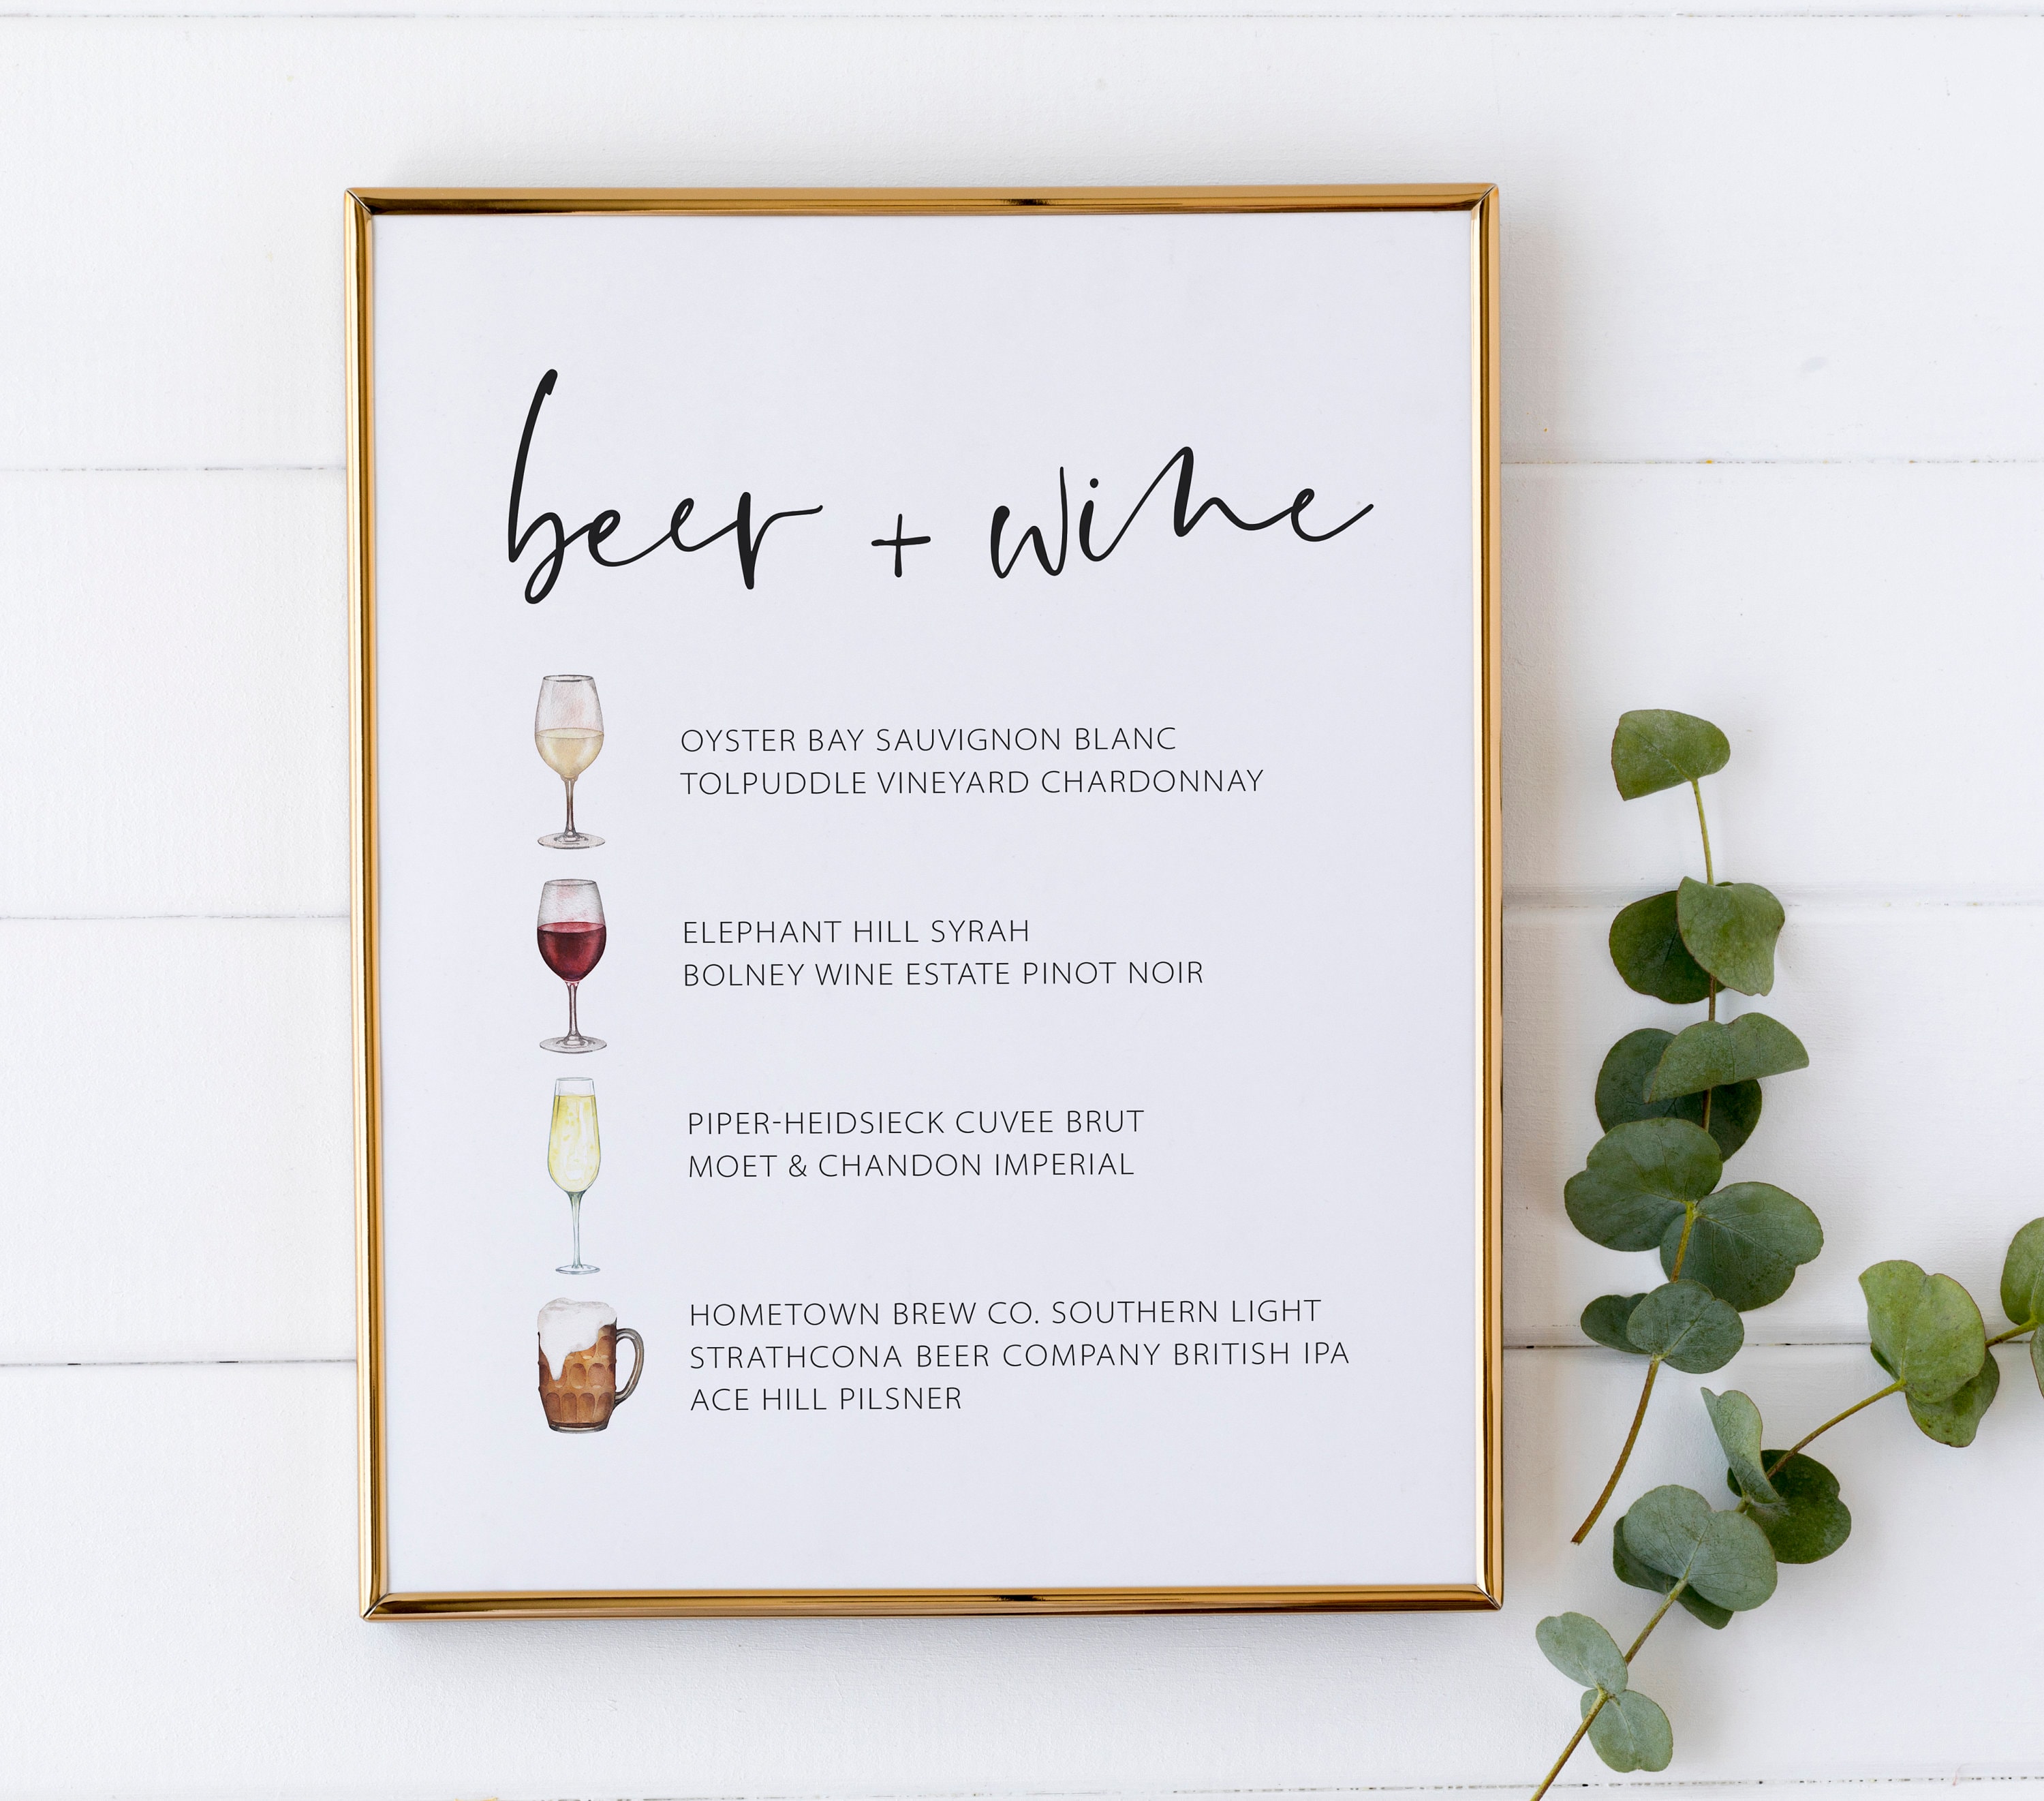 beer + wine
OYSTER BAY SAUVIGNON BLANC
TOLPUDDLE VINEYARD CHARDONNAY
ELEPHANT HILL SYRAH
BOLNEY WINE ESTATE PINOT NOIR
PIPER-HEIDSIECK CUVEE BRUT
MOET & CHANDON IMPERIAL
HOMETOWN BREW CO. SOUTHERN LIGHT
STRATHCONA BEER COMPANY BRITISH IPA
ACE HILL PILSNER